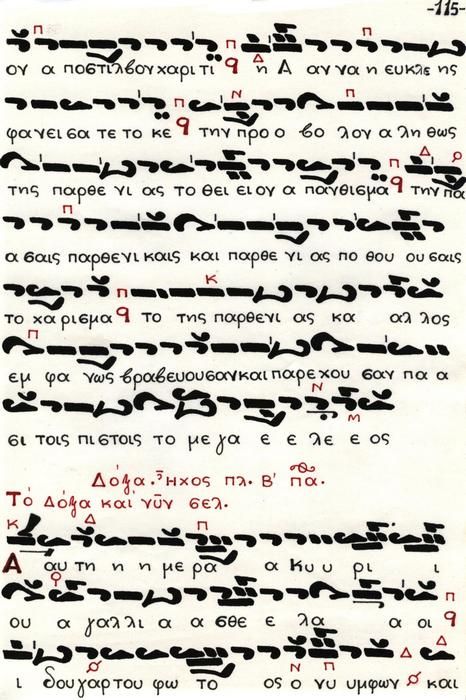 -115-
ου α ποστιλβον χαρι τι η Α αν να η ευκλε ης
φανει σα τε το κε την προ ο βο λον α λη θως
της παρθε νι ας το θει ει ον α πανθισμα την πα
α σαις παρθενι καις και παρθε νι ας πο θου ου σαις
το χα ρισμα το της παρθενι ας κα αλ λος
εμ φα νως βραβευουσαν και παρεχου σαν πα α
σι τοις πιστοις το με γα ε ε λε ε ος
Δόξα. Ἦχος πλ. Β' πα.
Τό Δόξα καί νῦν σελ.
Α αυ τη η η με ρα α Κυ υ ρι ι
ου α γαλλι α α σθε ε λα α οι
ι δου γαρ του φω το ος ο νυ υμφων και